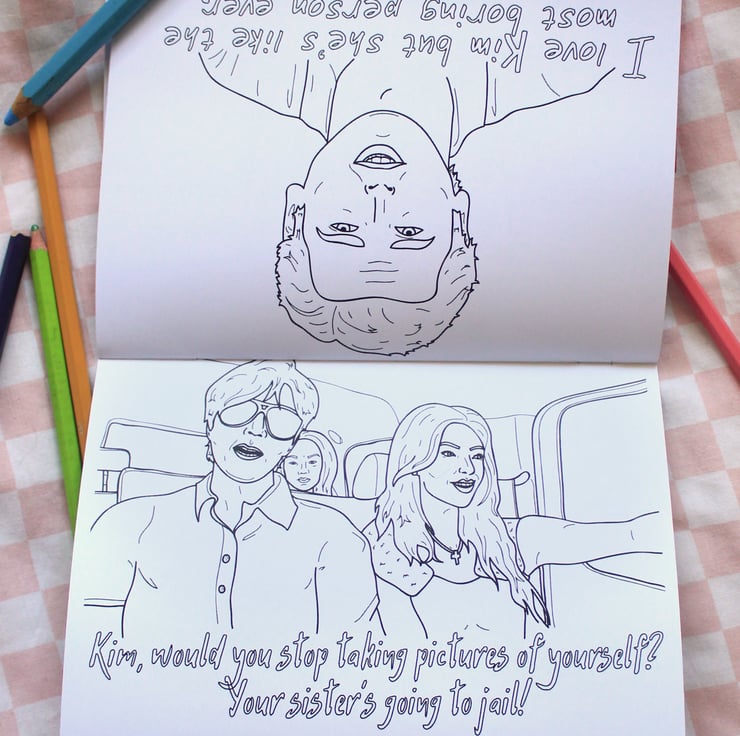 I love Kim but she's like the
most boring person ever
Kim, would you stop taking pictures of yourself?
Your sister's going to jail!